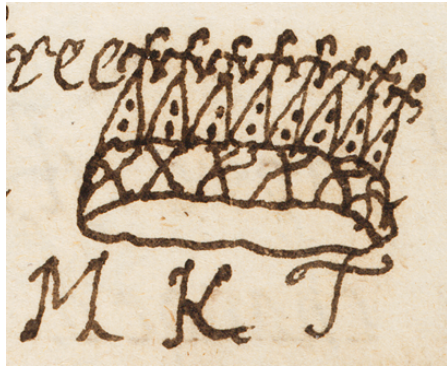 ree
M K T